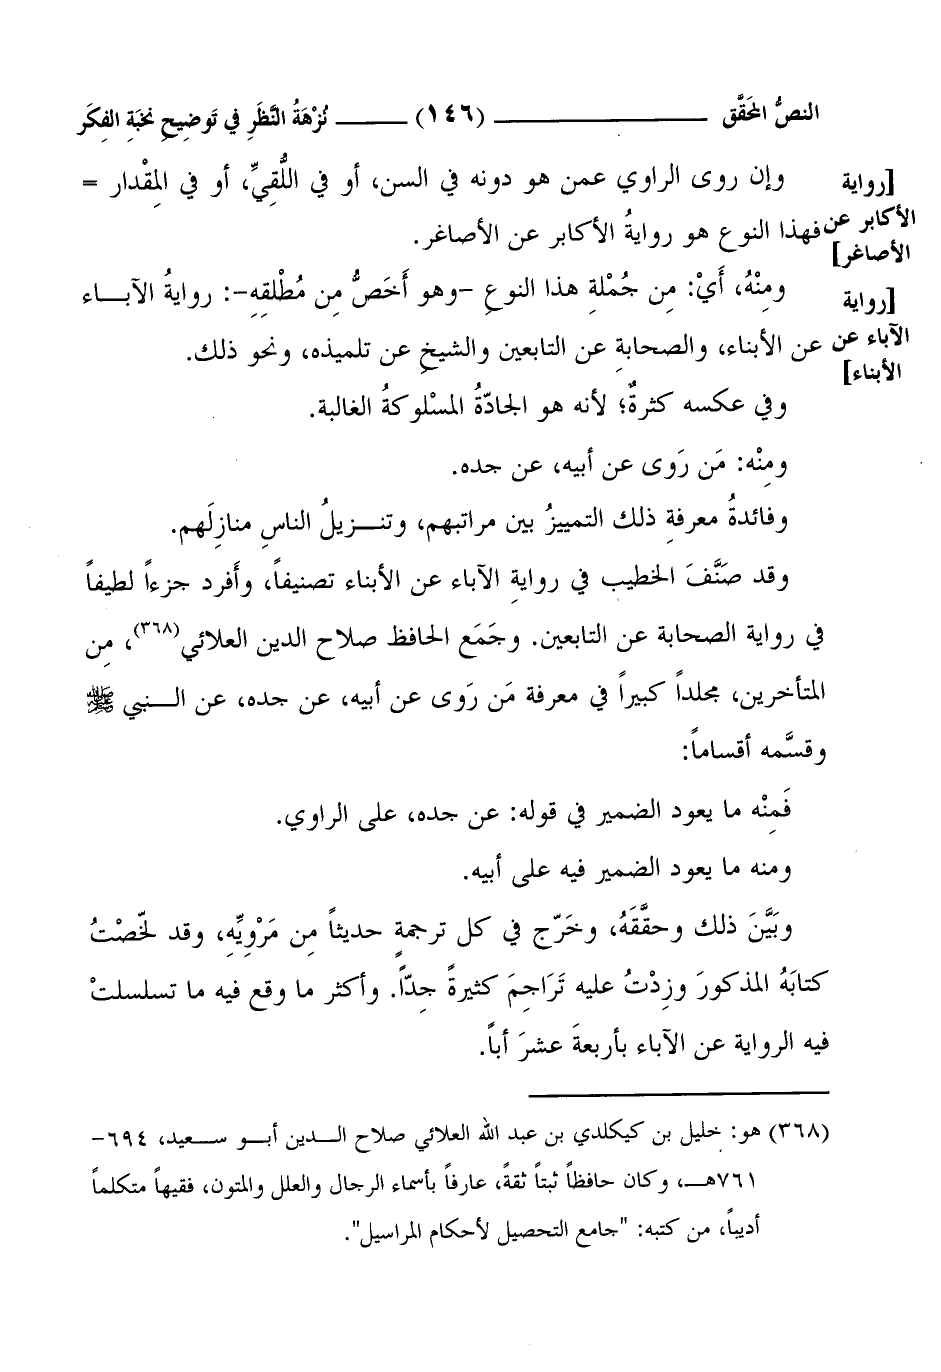 النصُّ المحَقَّق ــــــــ (١٤٦) ــــــــ نُزْهَةُ النَّظَرِ في تَوضِيحِ نخبَةِ الفِكَر
[رواية
الأكابر عن
الأصاغر]
وإن روى الراوي عمن هو دونه في السن، أو في اللُّقِيِّ، أو في المِقْدار =
فهذا النوع هو روايةُ الأكابر عن الأصاغر.
[رواية
الآباء عن
الأبناء]
ومِنْهُ، أَيْ: مِن جُمْلةِ هذا النوعِ -وهو أَخَصُّ مِن مُطْلقِهِ-: روايةُ الآبـــاء
عن الأبناء، والصحابةِ عن التابعين والشيخِ عن تلميذه، ونحو ذلك.
وفي عكسه كثرةٌ؛ لأنه هو الجادّةُ المسْلوكةُ الغالبة.
ومِنْه: مَن رَوى عن أبيه، عن جده.
وفائدةُ معرفةِ ذلك التمييزُ بين مراتبهم، وتنـــزيلُ الناسِ منازلَهم.
وقد صَنَّفَ الخطيب في روايةِ الآباء عن الأبناء تصنيفاً، وأَفرد جزءاً لطيفاً
في رواية الصحابة عن التابعين. وجَمَع الحافظ صلاح الدين العلائي(٣٦٨)، مِن
المتأخرين، مجلداً كبيراً في معرفة مَن رَوى عن أبيه، عن جده، عن النـــبي ﷺ
وقسَّمه أقساماً:
فَمِنْه ما يعود الضمير في قوله: عن جده، على الراوي.
ومنه ما يعود الضمير فيه على أبيه.
وبَيَّنَ ذلك وحقَّقَهُ، وخَرّج في كل ترجمةٍ حديثاً مِن مَرْوِيِّه، وقد لخّصْتُ
كتابَهُ المذكورَ وزِدْتُ عليه تَرَاجِمَ كثيرةً جِدّاً. وأكثر ما وقع فيه ما تسلسلتْ
فيه الرواية عن الآباء بأربعةَ عشرَ أباً.
(٣٦٨) هو: خليل بن كيكلدي بن عبد الله العلائي صلاح الـــدين أبـــو ســـعيد، ٦٩٤-
٧٦١هـــ، وكان حافظاً ثبتاً ثقةً، عارفاً بأسماء الرجال والعلل والمتون، فقيهاً متكلماً
أديباً، من كتبه: "جامع التحصيل لأحكام المراسيل".